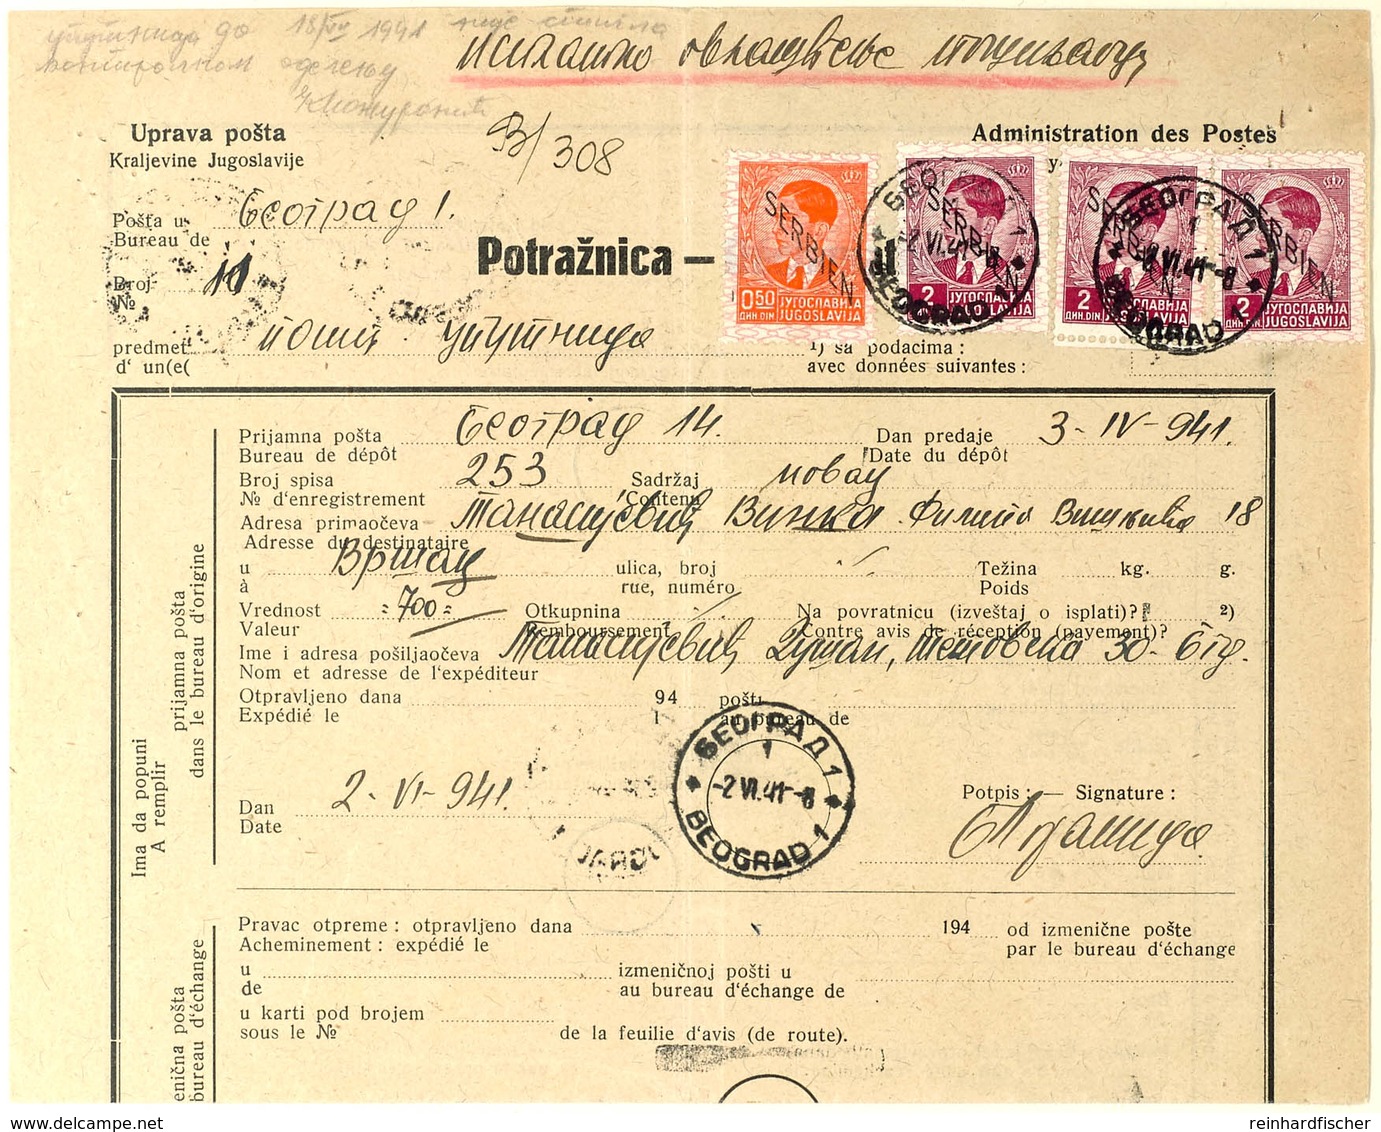 до 18/IV 1941 није стигла
исплаћено овлашћење пошиљаоцу
Uprava pošta
Kraljevine Jugoslavije
B/308
Administration des Postes
Pošta u Београд 1.
Bureau de
Broj 11
№
Potražnica —
SERBIEN
0.50 ЈУГОСЛАВИЈА
ДИН. DIN JUGOSLAVIJA
SERBIEN
2 ЈУГОСЛАВИЈА
SERBIEN
2 ЈУГОСЛАВИЈА
ДИН. DIN
SERBIEN
2 ЈУГОСЛАВИЈА
ДИН. DIN JUGOSLAVIJA
БЕОГРАД 1
-2.VI.41-8
BEOGRAD 1
БЕОГРАД 1
1
-2.VI.41-8
BEOGRAD 1
predmet пошт. упутница
d' un(e(
1) sa podacima :
avec données suivantes :
Prijamna pošta Београд 14. Dan predaje 3-IV-941.
Bureau de dépôt Date du dépôt
Broj spisa 253 Sadržaj новац
№ d'enregistrement Contenu
Adresa primaočeva Танасијевић Винка Филипа Вишњића 18
Adresse du destinataire
u Вршац ulica, broj Težina kg. g.
à rue, numéro Poids
Vrednost =700= Otkupnina Na povratnicu (izveštaj o isplati)? 2)
Valeur Remboursement Contre avis de réception (payement)?
Ime i adresa pošiljaočeva Танасијевић Душан, 30- Бгд.
Nom et adresse de l'expéditeur
Otpravljeno dana 94 pošti
Expédié le 1 au bureau de
БЕОГРАД 1
1
-2.VI.41-8
BEOGRAD 1
Dan 2-VI-941.
Date
Potpis : — Signature :
Ima da popuni
A remplir
prijamna pošta
dans le bureau d'origine
Pravac otpreme : otpravljeno dana 194 od izmenične pošte
Acheminement : expédié le par le bureau d'échange
u izmeničnoj pošti u
de au bureau d'échange de
u karti pod brojem
sous le № de la feuilie d'avis (de route).
enična pošta
bureau d'échange
reinhardfischer